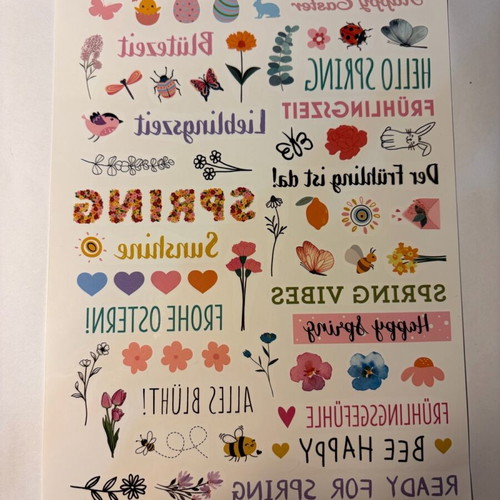 Happy Easter
Blütezeit
HELLO SPRING
FRÜHLINGSZEIT
Lieblingszeit
Der Frühling ist da!
SPRING
Sunshine
SPRING VIBES
FROHE OSTERN!
Happy Spring
ALLES BLÜHT!
FRÜHLINGSGEFÜHLE
BEE HAPPY
READY FOR SPRING